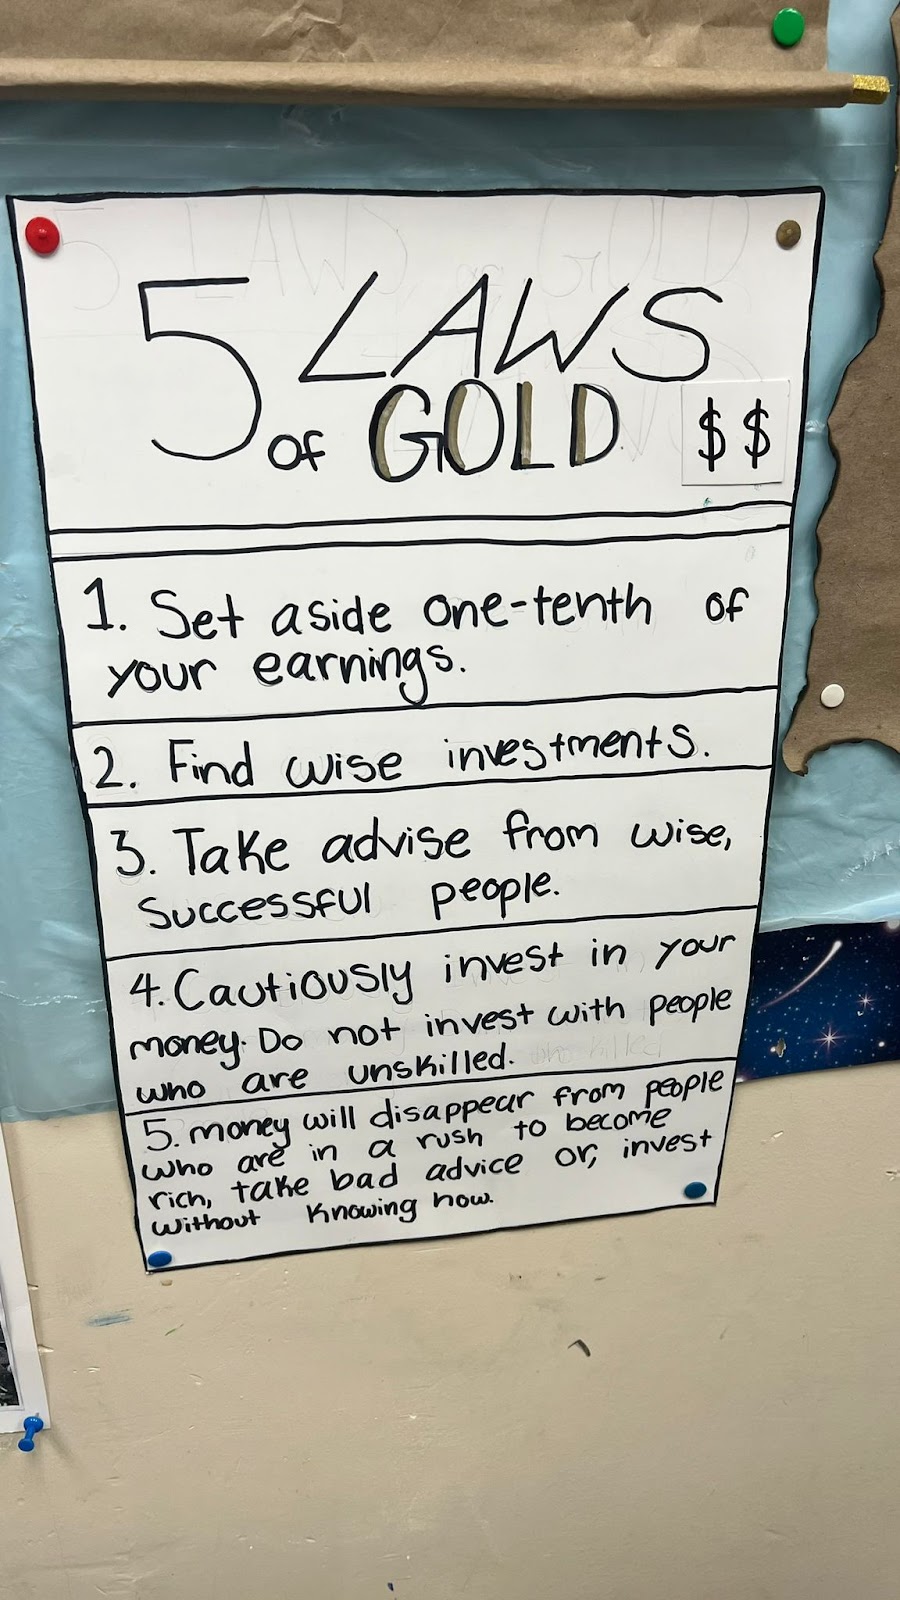 5 LAWS
of GOLD $$
1. Set aside one-tenth of
your earnings.
2. Find wise investments.
3. Take advise from wise,
successful people.
4. Cautiously invest in your
money. Do not invest with people
who are unskilled.
5. money will disappear from people
who are in a rush to become
rich, take bad advice or, invest
without knowing how.